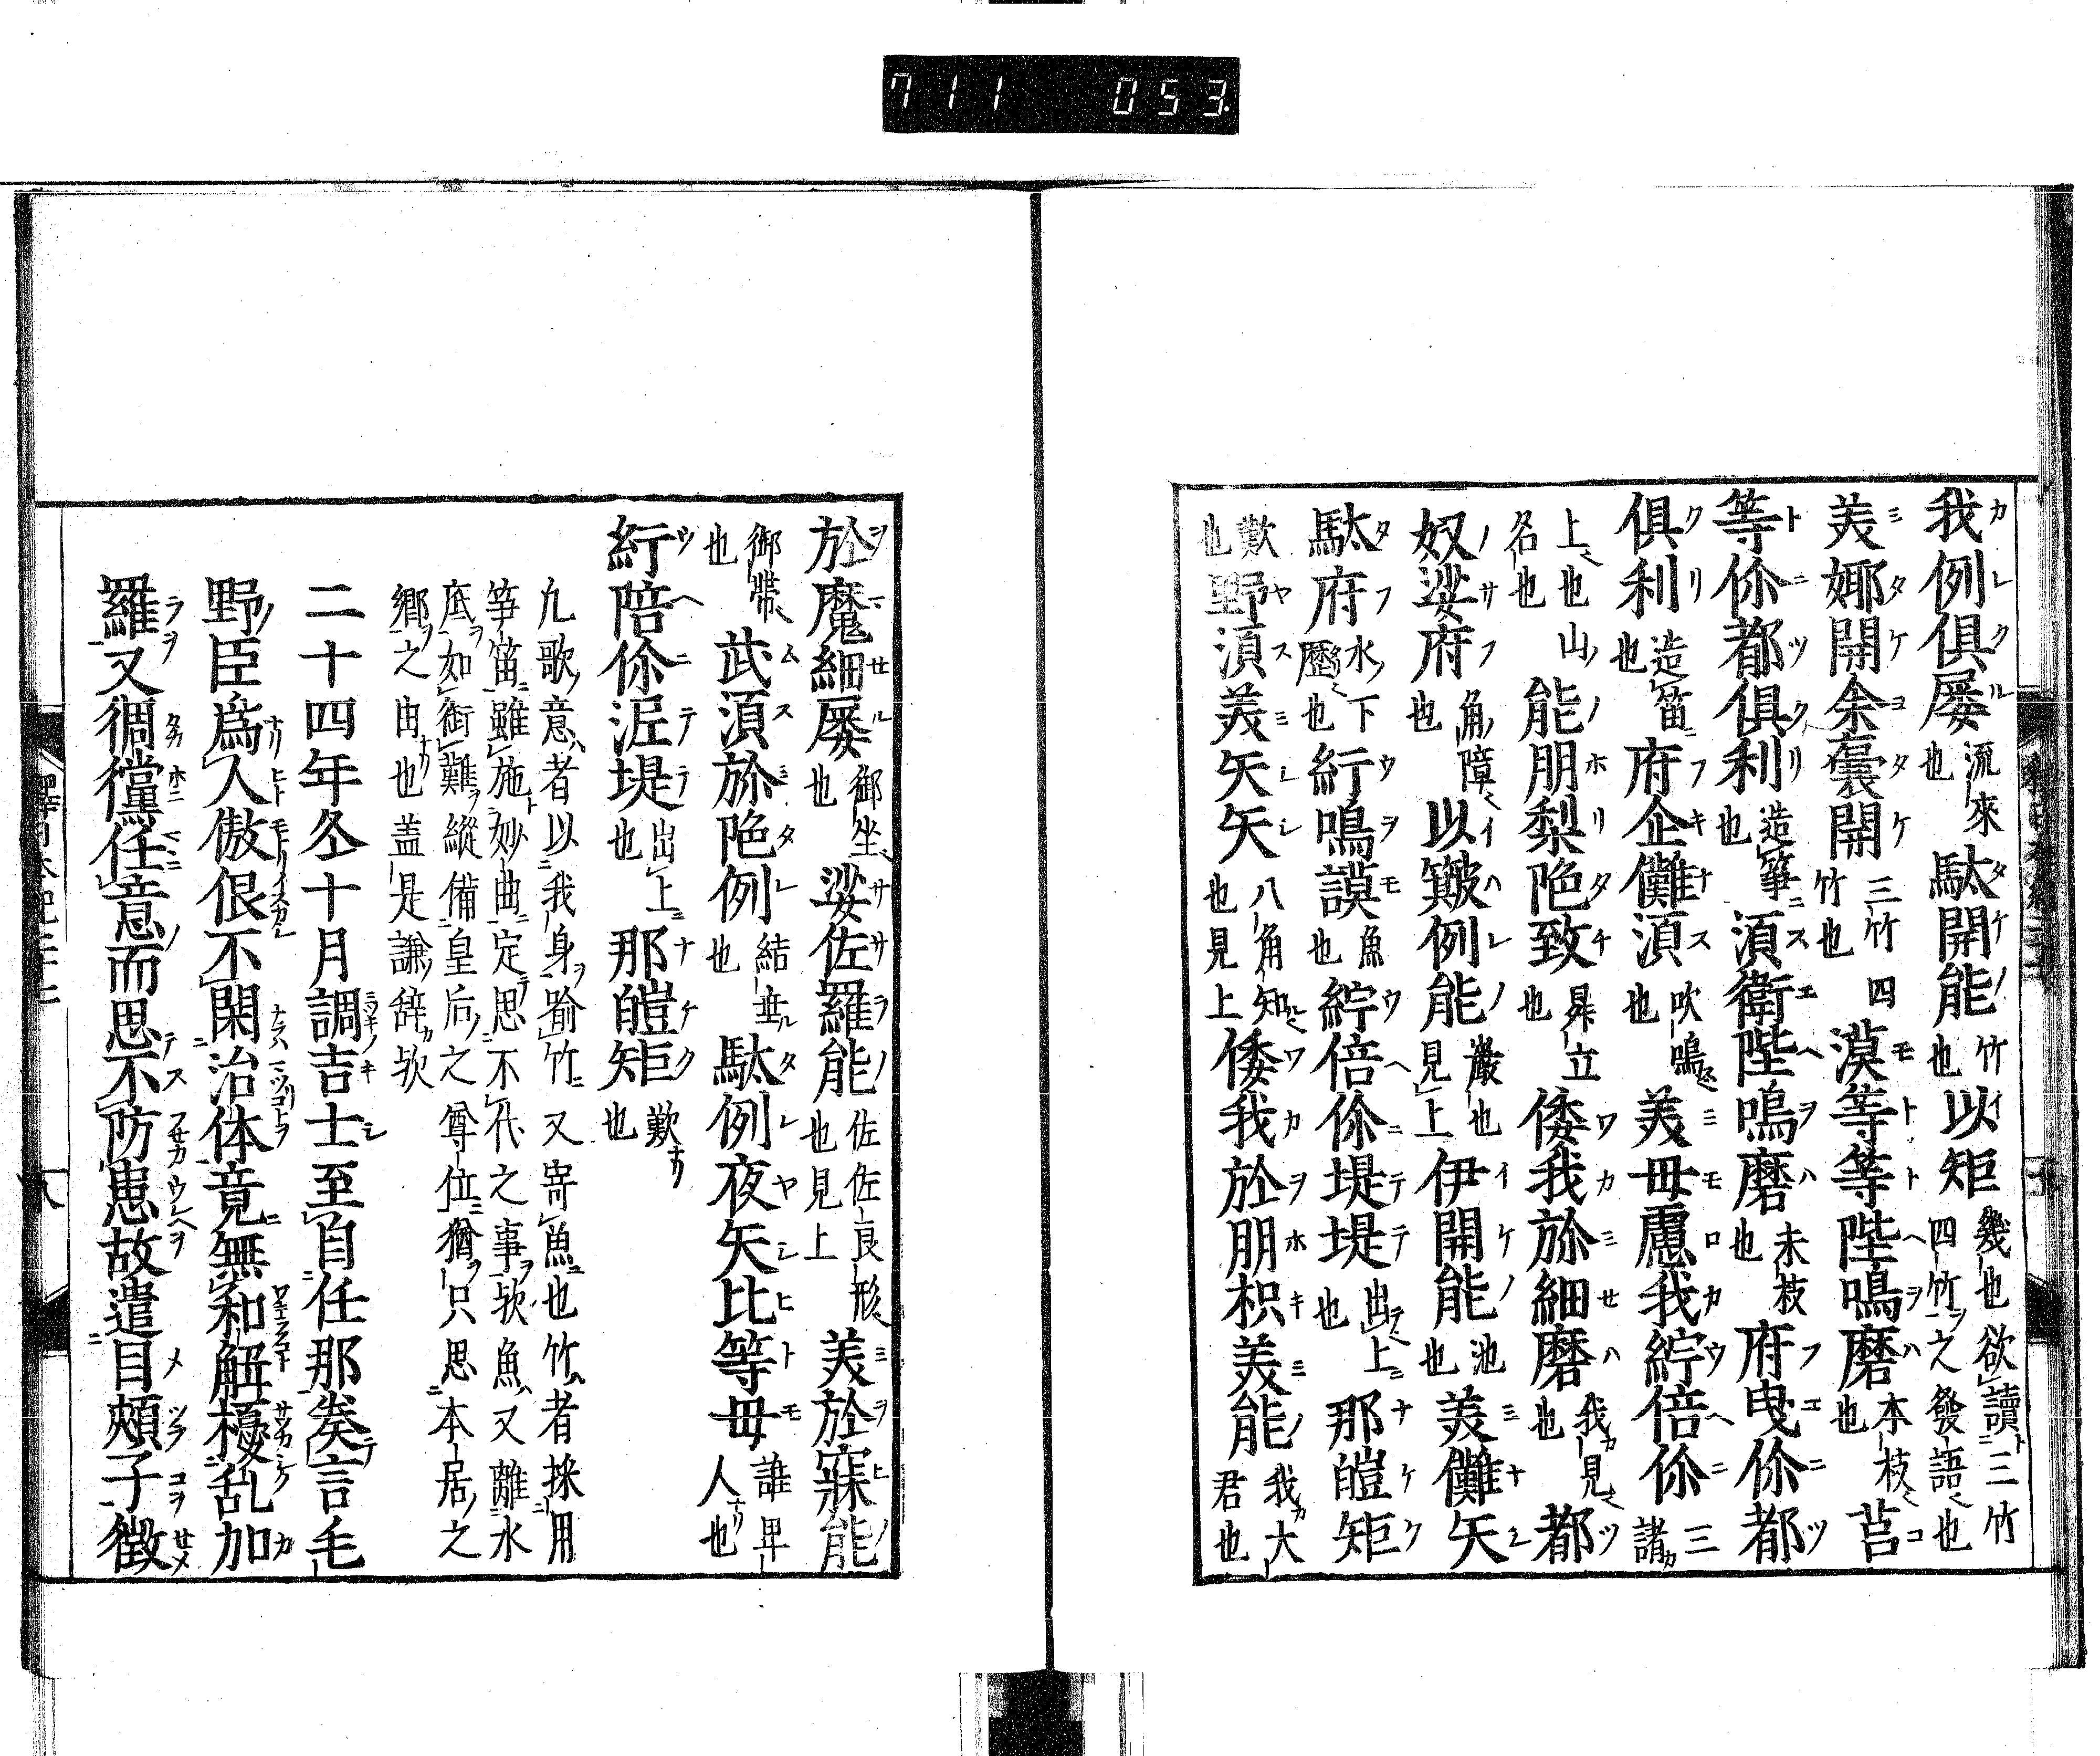 711 053
我例俱屢流來也駄開能竹也以矩幾也欲讀三竹四竹之發語也
美娜開余嚢開三竹四竹也漠等等陛嗚磨本枝也莒
等你都俱利造箏也湏衛陛嗚磨末枝也府曳你都
俱利造笛也府企儺湏吹鳴也美母慮我紵倍你三諸
上也山名也能朋梨陁致昇立也倭我於細磨我見也都
奴娑府角障也以簸例能巖也見上伊開能池也美儺矢
駄府水下歷也紵嗚謨魚也紵倍你堤堤出上也那皚矩
歎也野湏美矢矢八角知也見上倭我於朋枳美能我大君也
於魔細屢御坐也娑佐羅能佐佐良形也見上美於寐能
御帶也武湏於陁例結垂也駄例夜矢比等母誰卑人也
紵陪你泥堤出上也那皚矩歎也
凡歌意者以我身喻竹又寄魚也竹者採用
箏笛雖施妙曲定思不代之事欤魚又離水
底如銜難縱備皇后之尊位猶只思本居之
鄉之由也盖是謙辞欤
二十四年冬十月調吉士至自任那奏言毛
野臣爲人傲佷不閑治体竟無和解擾乱加
羅又倜儻任意而思不防患故遣目頰子徵